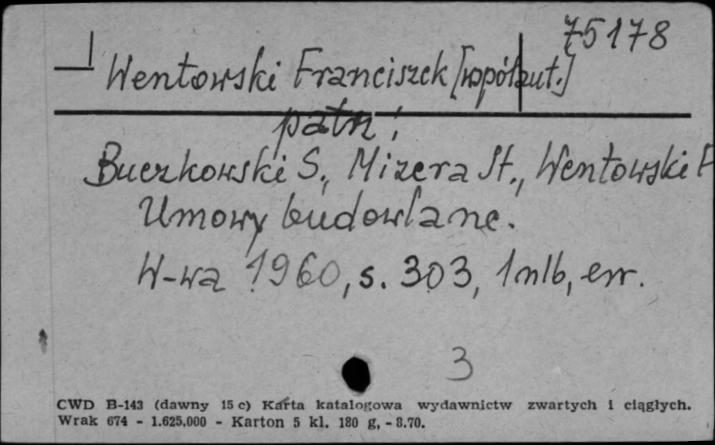 75178
Wentowski Franciszek [współaut.]
patrz:
Buczkowski S., Mizera St., Wentowski F
Umowy budowlane.
W-wa 1960, s. 303, 1 nlb, err.
3
CWD B-143 (dawny 15 c) Karta katalogowa wydawnictw zwartych i ciągłych.
Wrak 674 - 1.625.000 - Karton 5 kl. 180 g, - 8.70.